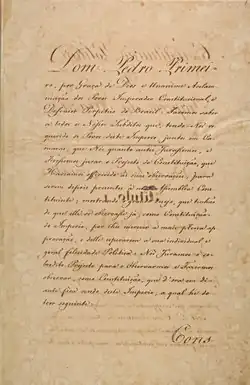 Dom Pedro Primei-
ro, por Graça de Deos e Unanime Aclama-
mação dos Povos, Imperador Constitucional, e
Defensor Perpetuo do Brasil: Fazemos saber
a todos os Nossos Subditos que, tendo-Nos re-
querido os Povos deste Imperio, juntos em Ca-
maras, que Nós quanto antes Jurassemos, e
Fizessemos jurar o Projecto de Constituição, que
Haviamos offerecido ás suas observações, para
serem depois presentes á nova Assembléa Cons-
tituinte, mostrando o grande desejo, que tinhão
de que elle se observasse já, como Constituição
do Imperio, por lhes merecer a mais plena ap-
provação, e delle esperarem a sua individual, e
geral felicidade Politica: Nós Juramos o so-
bredito Projecto para o Observarmos e Fazermos
observar, como Constituição, que d'ora em di-
ante fica sendo deste Imperio, a qual he do the-
or seguinte:
Cons